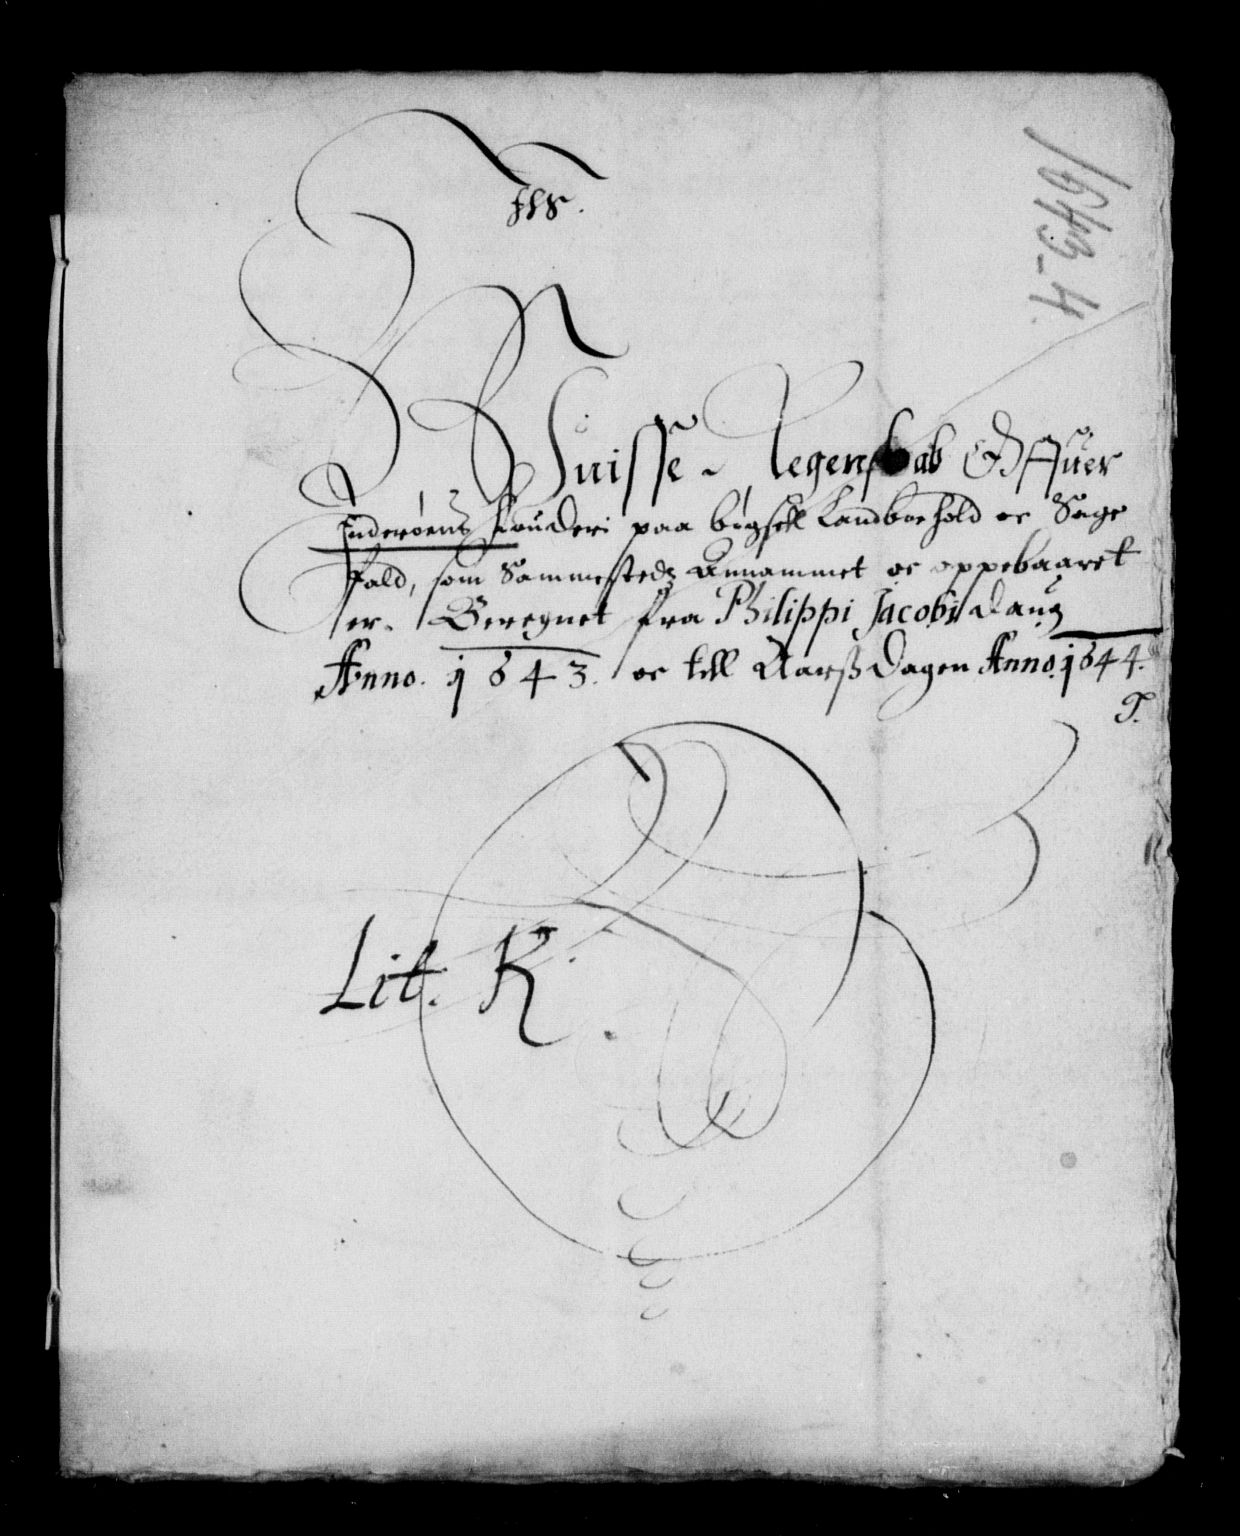 IHS.
1643-4
Wisse Regenskab Offuer
Inderøens Fouderi paa bøgsell Landboehold oc Sage
fald, som Sammestedz Annammet oc oppebaaret
er. Beregnet fra Philippi Jacobi daug
Anno. 1643. oc till Aarß dagen Anno. 1644.
Lit. K.